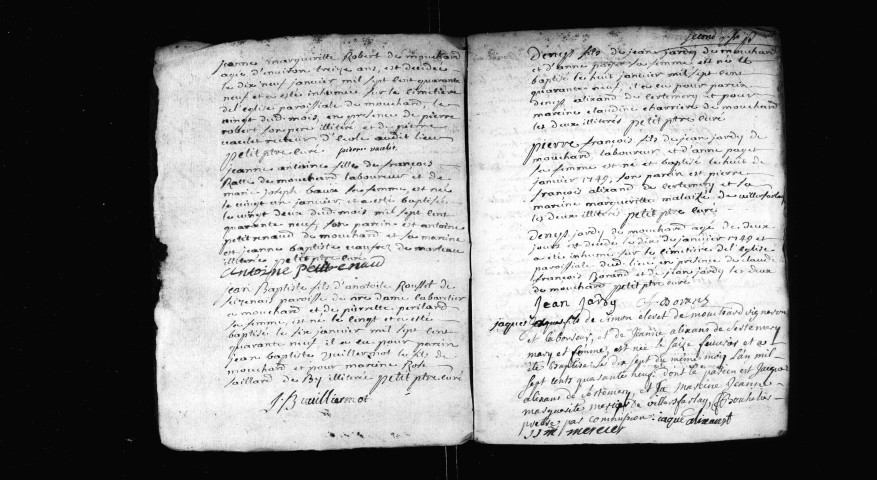 jeanne margueritte Robert de mouchard
agée d'environ treize ans, est decedée
le dix neuf janvier mil sept cent quarante
neuf et a estée inhumée sur le cimetière
de l'eglise paroissiale de mouchard, le
vingt dud. mois, en presence de pierre
robert son pere illiteré et de pierre
vaulet recteur d'école audit lieu
petit ptre curé. pierre vaulet
jeanne antoine fille de françois
Ratte de mouchard laboureur et de
marie joseph baux sa femme, est née
le vingt un janvier, et a estée baptisée
le vingt deux dud. mois mil sept cent
quarante neuf, son parein est antoine
petit renaud de mouchard et sa mareine
est jeanne baptiste de marteau
illiterée petit ptre curé
Antoine petit renaud
jean Baptiste fils d'anatoile Rousset de
paroisse de nre dame
a mouchard et de pierrette perilard
sa femme, est né le vingt et a esté
baptisé le six janvier mil sept cent
quarante neuf, il a eu pour parein
jean baptiste vuillermot le fils de
mouchard et pour mareine Rose
saillard de By illiterée petit ptre curé
J. B. vuilliermot
second
Denys fils de jean jardy de mouchard
et d'anne paget sa femme est né et
baptisé le huit janvier mil sept cent
quarante neuf, il a eu pour parein
denys alixand de certemery et pour
mareine claudine charriere de mouchard
les deux illiterés petit ptre curé
pierre françois fils de jean jardy de
mouchard laboureur et d'anne paget
sa femme est né et baptisé le huit de
janvier 1749, son parein est pierre
françois alixand de certemery et sa
mareine margueritte de villersfarlay
les deux illiterés petit ptre curé
Denys jardy de mouchard agé de deux
jours est decedé le dix de janvier 1749 et
a esté inhumé sur le cimetiere de l'eglise
paroissiale dud. lieu en presence de claude
françois Bonard et de jean jardy les deux
de mouchard petit ptre curé
Jean Jardy
jaques fils de simon de mouchard vigneron
et laboureur, et de jeanne alixans de Certe
mery sa femme, est né le saize feuvrier et a
été Baptisé Le dix sept du même mois L'an mil
sept cents quarante neuf dont le parein est Jacque
alixans de Certemery, et Sa mareine Jeanne
marguerite mercier de villersfarlay,
prestre par commission jaque alixant
mercier